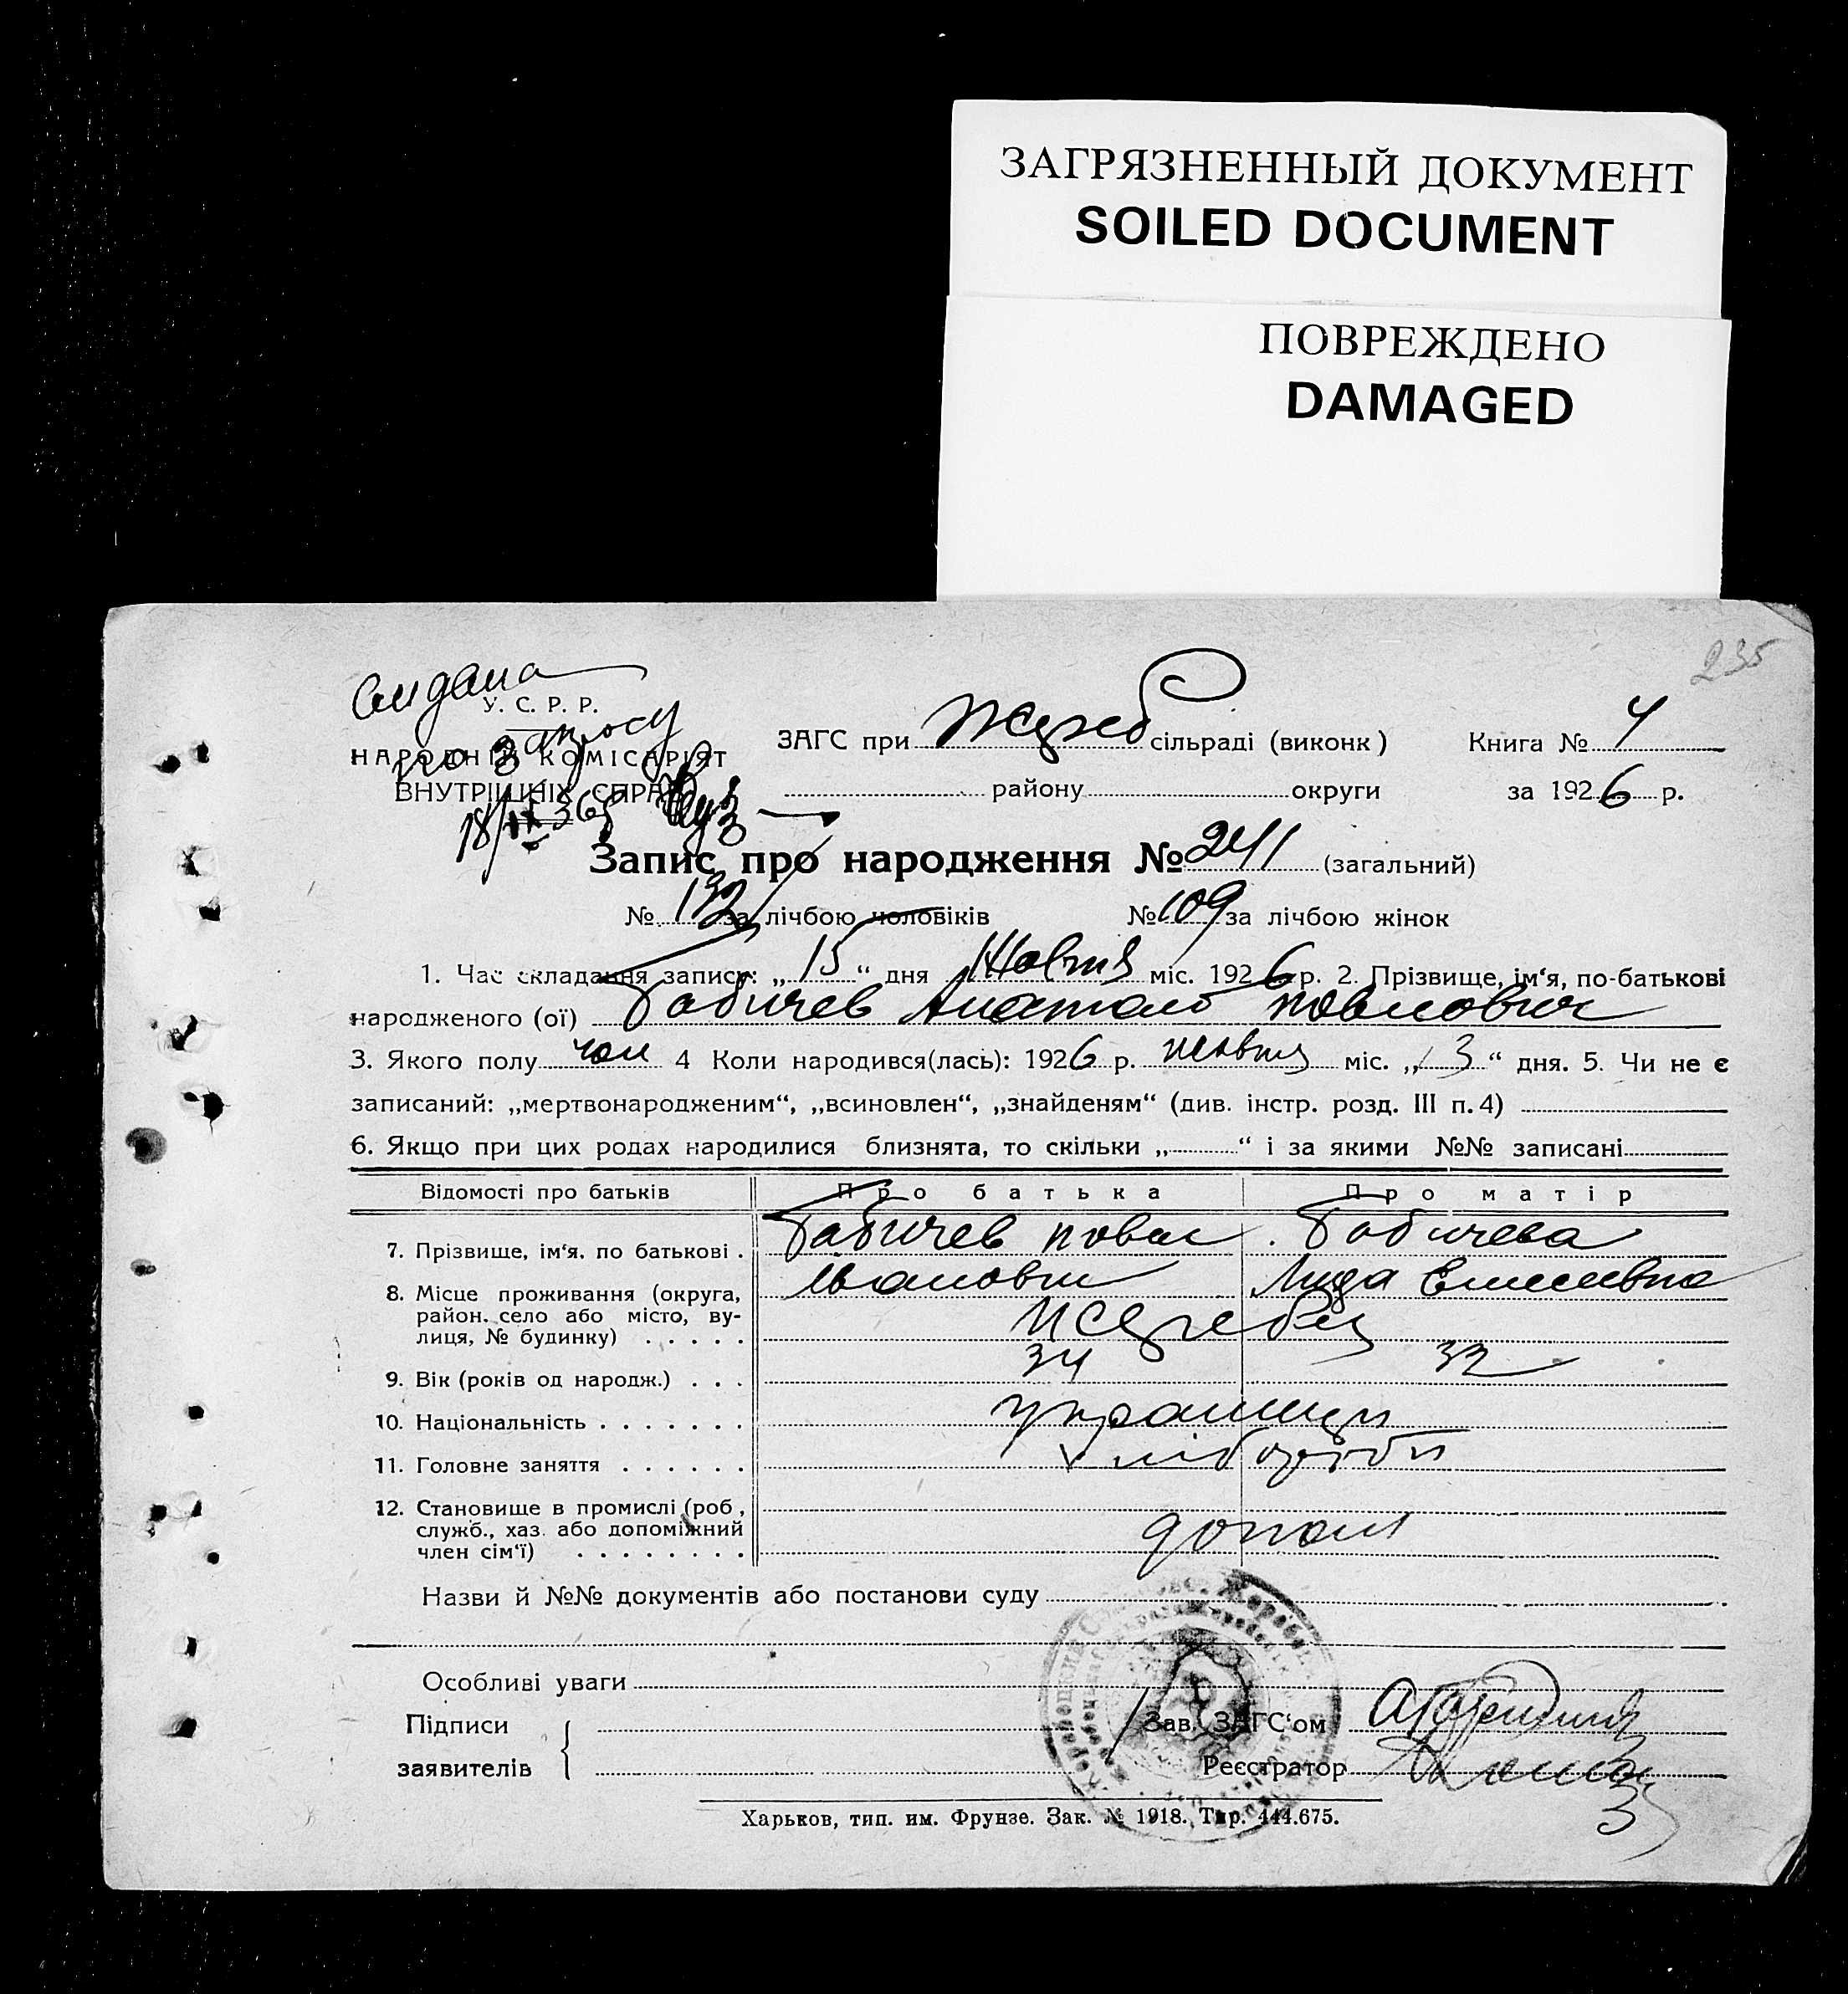 ЗАГРЯЗНЕННЫЙ ДОКУМЕНТ
SOILED DOCUMENT
ПОВРЕЖДЕНО
DAMAGED
235
У. С. Р. Р.
по запросу
НАРОДНІЙ КОМІСАРІЯТ
ВНУТРІШНІХ СПРАВ
ЗАГС при Жереб сільраді (виконк) Книга № 4
району округи за 1926 р.
Запис про народження № 241 (загальний)
№ 132 за лічбою чоловіків № 109 за лічбою жінок
1. Час складання запису: „15“ дня Жовтня міс. 1926 р. 2. Прізвище, ім‘я, по-батькові
народженого (ої) Бабичев Анатолій Повлович
3. Якого полу чол 4 Коли народився(лась): 1926 р. жовтня міс. „13“ дня. 5. Чи не є
записаний: „мертвонародженим“, „всиновлен“, „знайденям“ (див. інстр. розд. III п. 4)
6. Якщо при цих родах народилися близнята, то скільки „ “ і за якими №№ записані
Відомості про батьків Про батька Про матір
7. Прізвище, ім‘я, по батькові . Бабичев Повел Бабичева
Іванович Лида
8. Місце проживання (округа,
район, село або місто, ву-
лиця, № будинку) . . . . . Жеребец
9. Вік (років од народж.) . . . 34 32
10. Національність . . . . . . . українци
11. Головне заняття . . . . . . хліборіби
12. Становище в промислі (роб.,
служб., хаз. або допоміжний
член сім‘ї) . . . . . . . .
Назви й №№ документів або постанови суду
Особливі уваги
Підписи
заявителів
Зав. ЗАГС‘ом
Реєстратор
Харьков, тип. им. Фрунзе. Зак. № 1918. Тир. 444.675.